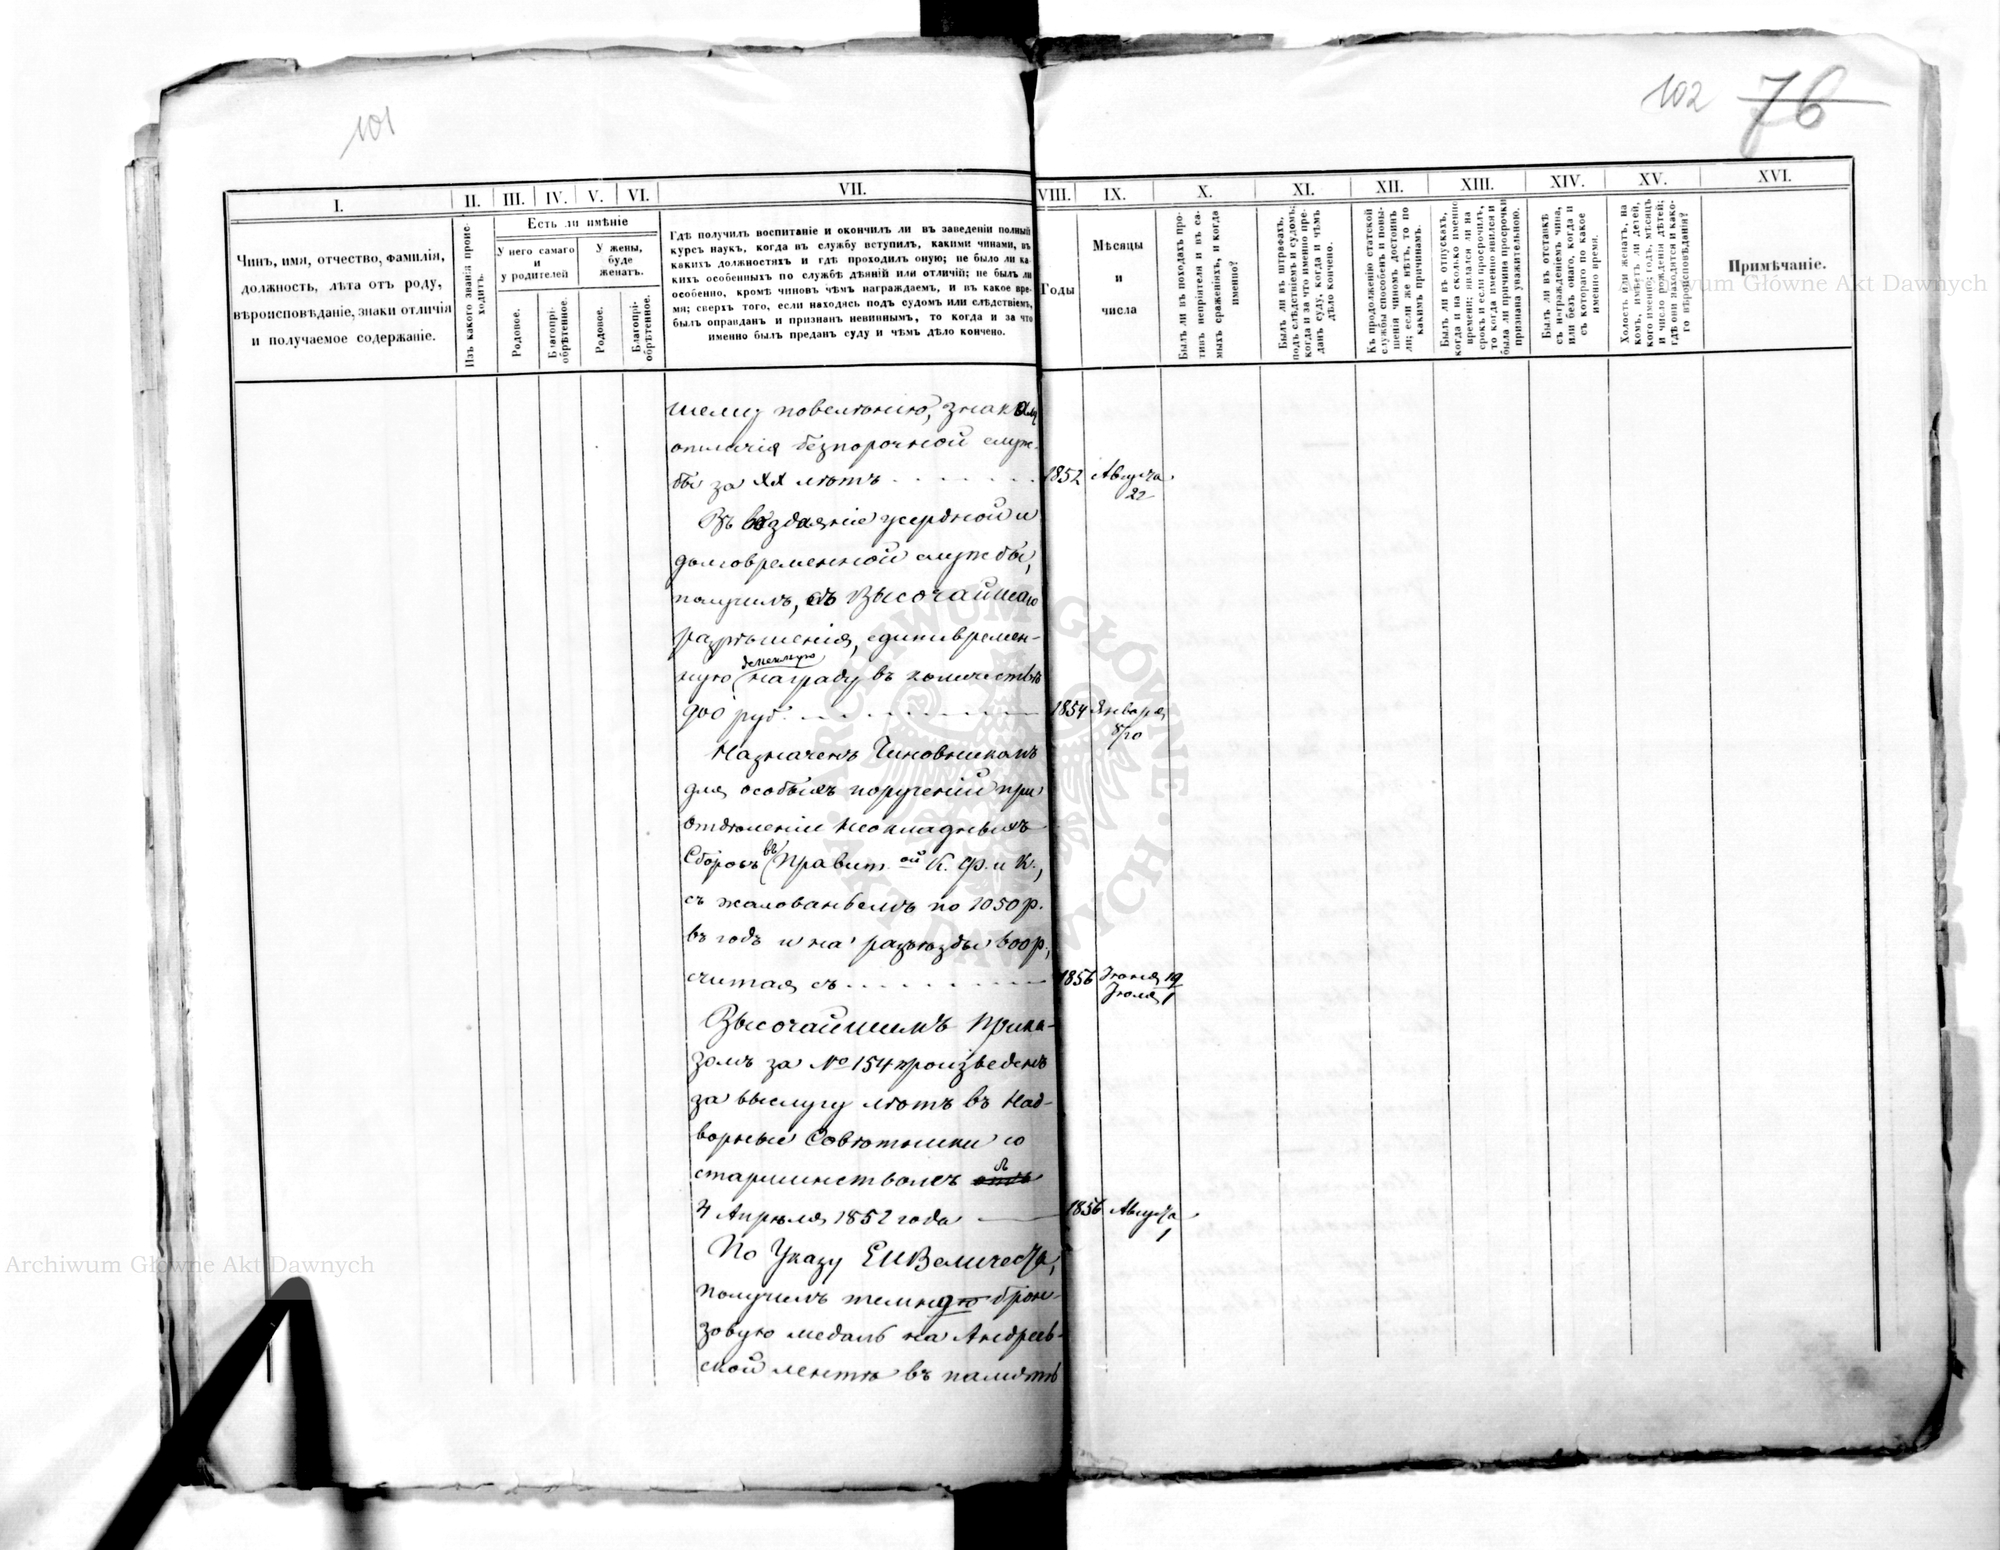 101
102 76
I.
II.
III.
IV.
V.
VI.
VII.
VIII.
IX.
X.
XI.
XII.
XIII.
XIV.
XV.
XVI.
Чинъ, имя, отчество, фамилія,
должность, лѣта отъ роду,
вѣроисповѣданіе, знаки отличія
и получаемое содержаніе.
Изъ какого званія проис-
ходитъ.
Есть ли имѣніе
У него самаго
и
у родителей
У жены,
буде
женатъ.
Родовое.
Благопрі-
обрѣтенное.
Родовое.
Благопрі-
обрѣтенное.
Гдѣ получилъ воспитаніе и окончилъ ли въ заведеніи полный
курсъ наукъ, когда въ службу вступилъ, какими чинами, въ
какихъ должностяхъ и гдѣ проходилъ оную; не было ли ка-
кихъ особенныхъ по службѣ дѣяній или отличій; не былъ ли
особенно, кромѣ чиновъ чѣмъ награждаемъ, и въ какое вре-
мя; сверхъ того, если находясь подъ судомъ или слѣдствіемъ,
былъ оправданъ и признанъ невиннымъ, то когда и за что
именно былъ преданъ суду и чѣмъ дѣло кончено.
Годы
Мѣсяцы
и
числа
Былъ ли въ походахъ про-
тивъ непріятеля и въ са-
мыхъ сраженіяхъ, и когда
именно?
Былъ ли въ штрафахъ,
подъ слѣдствіемъ и судомъ;
когда и за что именно пре-
данъ суду, когда и чѣмъ
дѣло кончено.
Къ продолженію статской
службы способенъ и повы-
шенія чиномъ достоинъ
ли; если же нѣтъ, то по
какимъ причинамъ.
Былъ ли въ отпускахъ,
когда и на сколько именно
времени; являлся ли на
срокъ и если просрочилъ,
то когда именно явился и
была ли причина просрочки
признана уважительною.
Былъ ли въ отставкѣ
съ награжденіемъ чина,
или безъ онаго, когда и
съ котораго по какое
именно время.
Холостъ или женатъ, на
комъ, имѣетъ ли дѣтей,
кого именно; годъ, мѣсяцъ
и число рожденія дѣтей;
гдѣ они находятся и како-
го вѣроисповѣданія?
Примѣчаніе.
шему повелѣнію, знакомъ
отличія безпорочной служ-
бы за XX лѣтъ 1852 Августа
22
Въ воздаяніе усердной и
долговременной службы,
получилъ, съ Высочайшаго
разрѣшенія, единовремен-
ную денежную награду въ количествѣ
900 руб. 1854 Января
8/20
Назначенъ Чиновникомъ
для особыхъ порученій при
Отдѣленіи Неокладныхъ
Сборовъ въ Правит.ой К. Ф. и К.,
съ жалованьемъ по 1050 р.
въ годъ и на разъѣзды 600 р.,
считая съ 1856 Іюня 19
Іюля 1
Высочайшимъ Прика-
зомъ за № 154 произведенъ
за выслугу лѣтъ въ Над-
ворные Совѣтники со
старшинствомъ съ
4 Апрѣля 1852 года 1856 Августа
1
По Указу Е И Величества,
получилъ темную брон-
зовую медаль на Андреев-
ской лентѣ въ память
ARCHIWUM GŁÓWNE AKT DAWNYCH
Archiwum Główne Akt Dawnych
Archiwum Główne Akt Dawnych